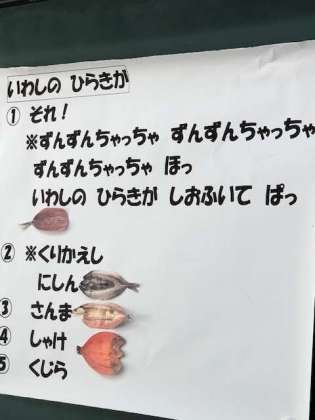 いわしの ひらきが
① それ！
※ずんずんちゃっちゃ ずんずんちゃっちゃ
ずんずんちゃっちゃ ほっ
いわしの ひらきが しおふいて ぱっ
② ※くりかえし
にしん
③ さんま
④ しゃけ
⑤ くじら